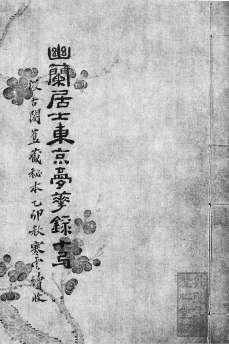 幽蘭居士東京夢華錄十卷
汲古閣舊藏秘本乙卯秋寒雲續收